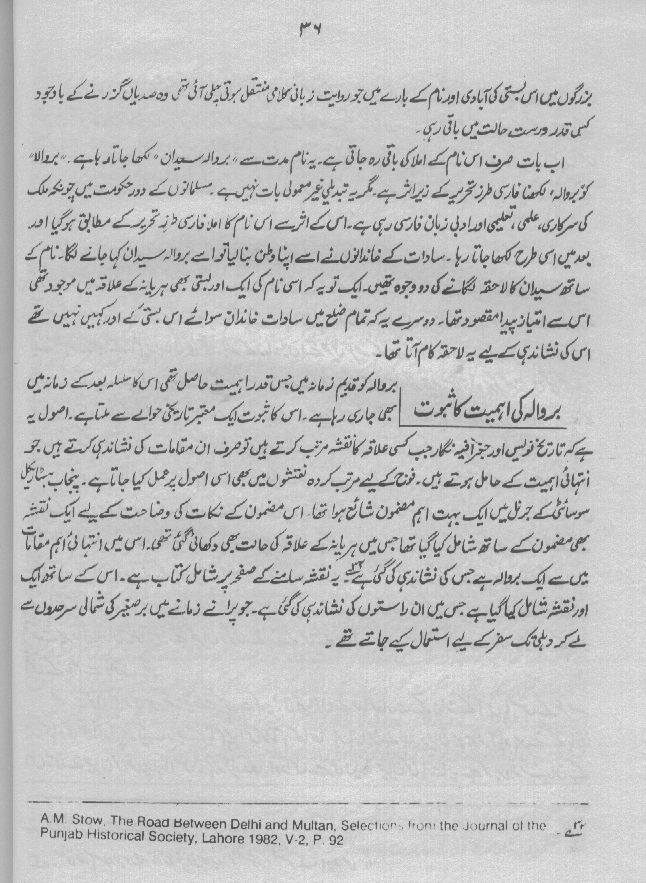 ۳۶
بزرگوں میں اس بستی کی آبادی اور نام کے بارے میں جو روایت زبانی کلامی منتقل ہوتی چلی آئی تھی وہ صدیاں گزرنے کے باوجود
کسی قدر درست حالت میں باقی رہی۔
اب بات صرف اس نام کے املا کی باقی رہ جاتی ہے۔ یہ نام مدت سے "بروالہ سیدان" لکھا جاتا رہا ہے۔ "بروالا"
کو بروالہ، لکھنا فارسی طرز تحریر کے زیر اثر ہے۔ مگر یہ تبدیلی غیر معمولی بات نہیں ہے۔ مسلمانوں کے دور حکومت میں چونکہ ملک
کی سرکاری، علمی، تعلیمی اور ادبی زبان فارسی رہی ہے۔ اس کے اثر سے اس نام کا املا فارسی طرز تحریر کے مطابق ہو گیا اور
بعد میں اسی طرح لکھا جاتا رہا۔ سادات کے خاندانوں نے اسے اپنا وطن بنا لیا تو اسے بروالہ سیدان کہا جانے لگا۔ نام کے
ساتھ سیدان کا لاحقہ لگانے کی دو وجوہ تھیں۔ ایک تو یہ کہ اسی نام کی ایک اور بستی بھی ہریانہ کے علاقہ میں موجود تھی
اس سے امتیاز پیدا مقصود تھا۔ دوسرے یہ کہ تمام ضلع میں سادات خاندان سوائے اس بستی کے اور کہیں نہیں تھے
اس کی نشاندہی کے لیے یہ لاحقہ کام آتا تھا۔
بروالہ کی اہمیت کا ثبوت
بروالہ کو قدیم زمانہ میں جس قدر اہمیت حاصل تھی اس کا سلسلہ بعد کے زمانہ میں
بھی جاری رہا ہے۔ اس کا ثبوت ایک معتبر تاریخی حوالے سے ملتا ہے۔ اصول یہ
ہے کہ تاریخ نویس اور جغرافیہ نگار جب کسی علاقہ کا نقشہ مرتب کرتے ہیں تو صرف ان مقامات کی نشاندہی کرتے ہیں جو
انتہائی اہمیت کے حامل ہوتے ہیں۔ فوج کے لیے مرتب کردہ نقشوں میں بھی اسی اصول پر عمل کیا جاتا ہے۔ پنجاب ہسٹاریکل
سوسائٹی کے جرنل میں ایک بہت اہم مضمون شائع ہوا تھا۔ اس مضمون کے نکات کی وضاحت کے لیے ایک نقشہ
بھی مضمون کے ساتھ شامل کیا گیا تھا جس میں ہریانہ کے علاقہ کی حالت بھی دکھائی گئی تھی۔ اس میں انتہائی اہم مقامات
میں سے ایک بروالہ ہے جس کی نشاندہی کی گئی ہے یہ نقشہ سامنے کے صفحہ پر شامل کتاب ہے۔ اس کے ساتھ ایک
اور نقشہ شامل کیا گیا ہے جس میں ان راستوں کی نشاندہی کی گئی ہے۔ جو پرانے زمانے میں برصغیر کی شمالی سرحدوں سے
لے کر دہلی تک سفر کے لیے استعمال کیے جاتے تھے۔
A.M. Stow, The Road Between Delhi and Multan, Selections from the Journal of the
Punjab Historical Society, Lahore 1982, V-2, P. 92